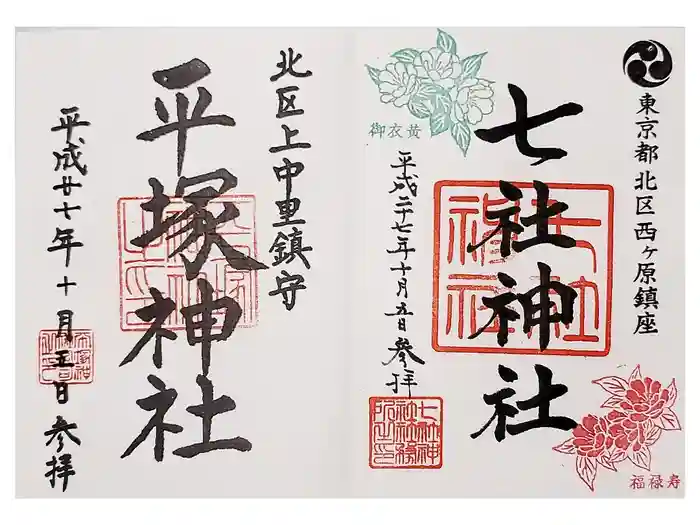 東京都北区西ヶ原鎮座
七社神社
御衣黄
平成二十七年十月五日參拝
福禄寿
七社神社
北区上中里鎮守
平塚神社
平成廿七年十月五日参拝